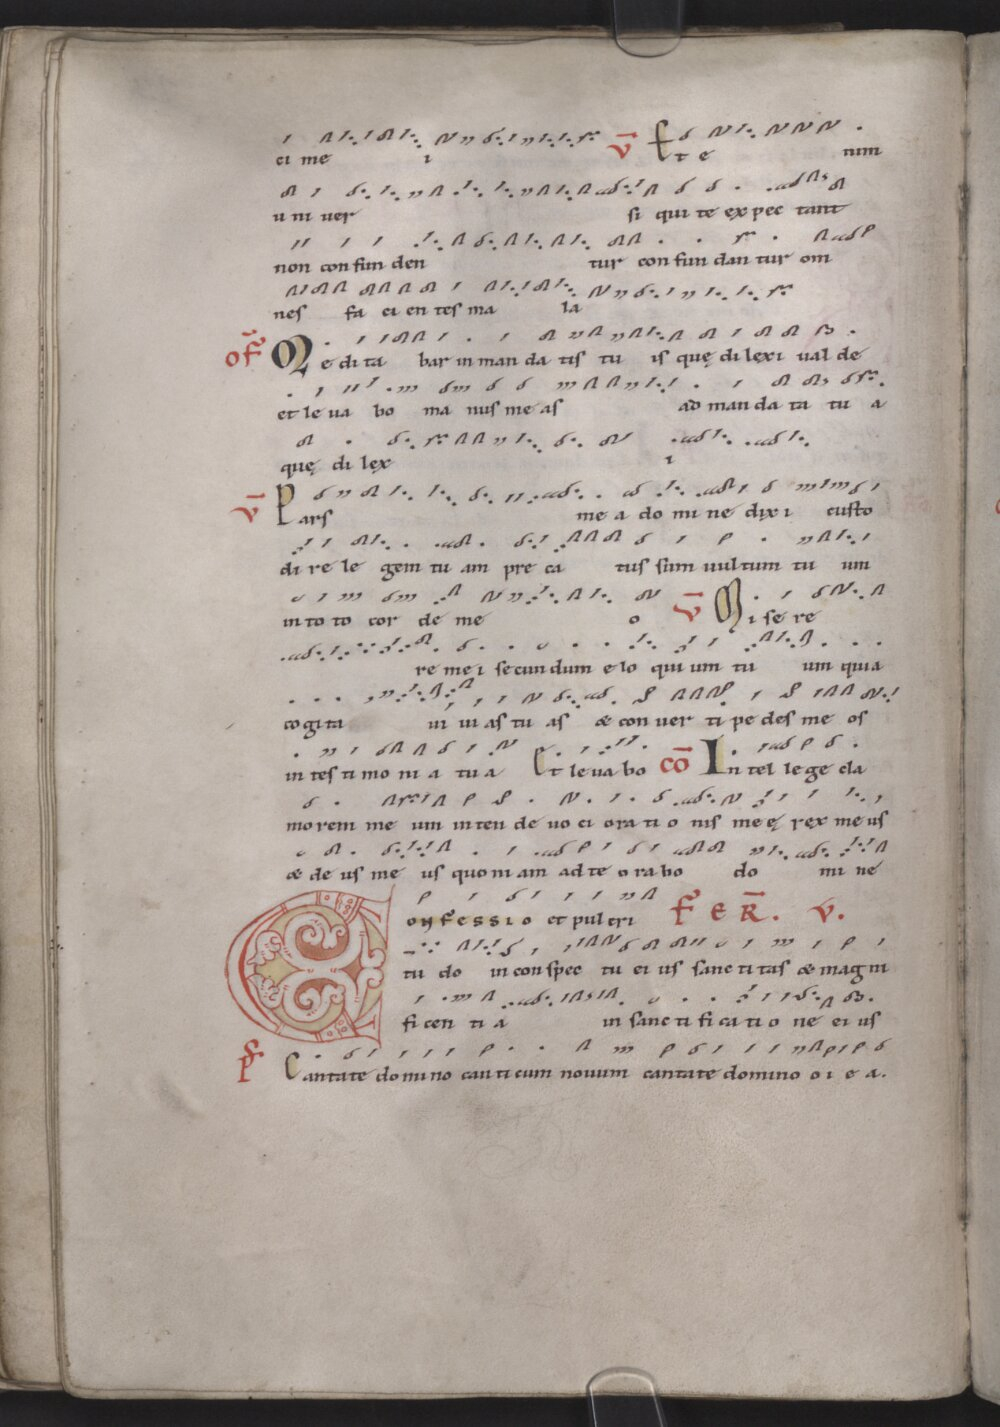 ci me i v̄ Et e nim
u ni ver si qui te expec tant
non con fun den tur con fun dan tur om
nes fa ci en tes ma la
of̄ Me di ta bar in man da tis tu is quę di lexi val de
et le va bo ma nus me as ad man da ta tu a
quę di lex i
v̄ Pars me a do mi ne dixi custo
di re le gem tu am pre ca tus sum vultum tu um
in to to cor de me o v̄ Mi se re
re me i secundum e lo qui um tu um quia
cogita vi vi as tu as & con ver ti pe des me os
in tes ti mo ni a tu a Et le va bo cō In tel le ge cla
morem me um in ten de vo ci ora ti o nis me ę rex me us
& de us me us quo ni am ad te o ra bo do mi ne
Confessio et pulcri FER. V.
tu do in con spec tu ei us sanc ti tas & mag ni
fi cen ti a in sanc ti fi ca ti o ne ei us
Ps Cantate domino canticum novum cantate domino o i e a.